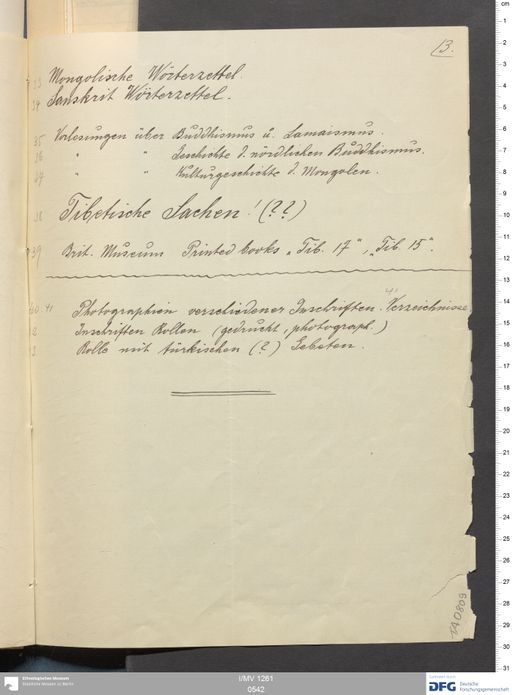 13.
33 Mongolische Wörterzettel.
34 Sanskrit Wörterzettel.
35 Vorlesungen über Buddhismus u. Lamaismus.
36 " " Geschichte d. nördlichen Buddhismus.
37 " " Kulturgeschichte d. Mongolen.
38 Tibetische Sachen! (??)
39 Brit. Museum Printed books „Tib. 17“, „Tib. 15“.
40. 41 Photographien verschiedener Inschriften. Verzeichnisse
41
2 Inschriften Rollen (gedruckt, photograph.)
3 Rolle mit türkischen (?) Gebeten.
Ethnologisches Museum
Staatliche Museen zu Berlin
I/MV 1261
0542
DFG Deutsche
Forschungsgemeinschaft
cm
1
2
3
4
5
6
7
8
9
10
11
12
13
14
15
16
17
18
19
20
21
22
23
24
25
26
27
28
29
30
31